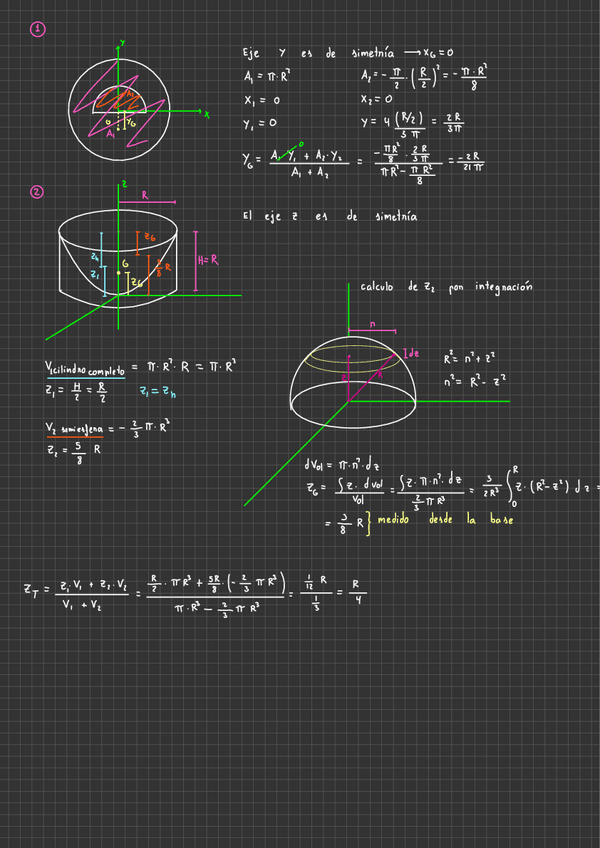 1
y
x
A₂
0
y_G
A₁
Eje Y es de simetría → x_G = 0
A₁ = π·R²
A₂ = -π/2 · (R/2)² = -π·R²/8
x₁ = 0
x₂ = 0
y₁ = 0
y = 4 (R/2)/3π = 2R/3π
y_G = (A₁·y₁ + A₂·y₂)/(A₁ + A₂) = (-πR²/8 · 2R/3π)/(πR² - πR²/8) = -2R/21π
0
2
z
R
El eje z es de simetría
z_G
z_h
z₁
G
z_G
3/8 R
H = R
calculo de z₂ por integración
r
dz
R
R² = r² + z²
r² = R² - z²
V₁ cilindro completo = π·R²·R = π·R³
z₁ = H/2 = R/2
z₁ = z_h
V₂ semiesfera = -2/3 π·R³
z₂ = 5/8 R
dVol = π·r²·dz
z_G = ∫z·dVol/Vol = ∫z·π·r²·dz/(2/3 πR³) = 3/2R³ ∫₀ᴿ z·(R²-z²) dz =
= 3/8 R } medido desde la base
z_T = (z₁·V₁ + z₂·V₂)/(V₁ + V₂) = (R/2·πR³ + 5R/8·(-2/3 πR³))/(π·R³ - 2/3 πR³) = (1/12 R)/(1/3) = R/4